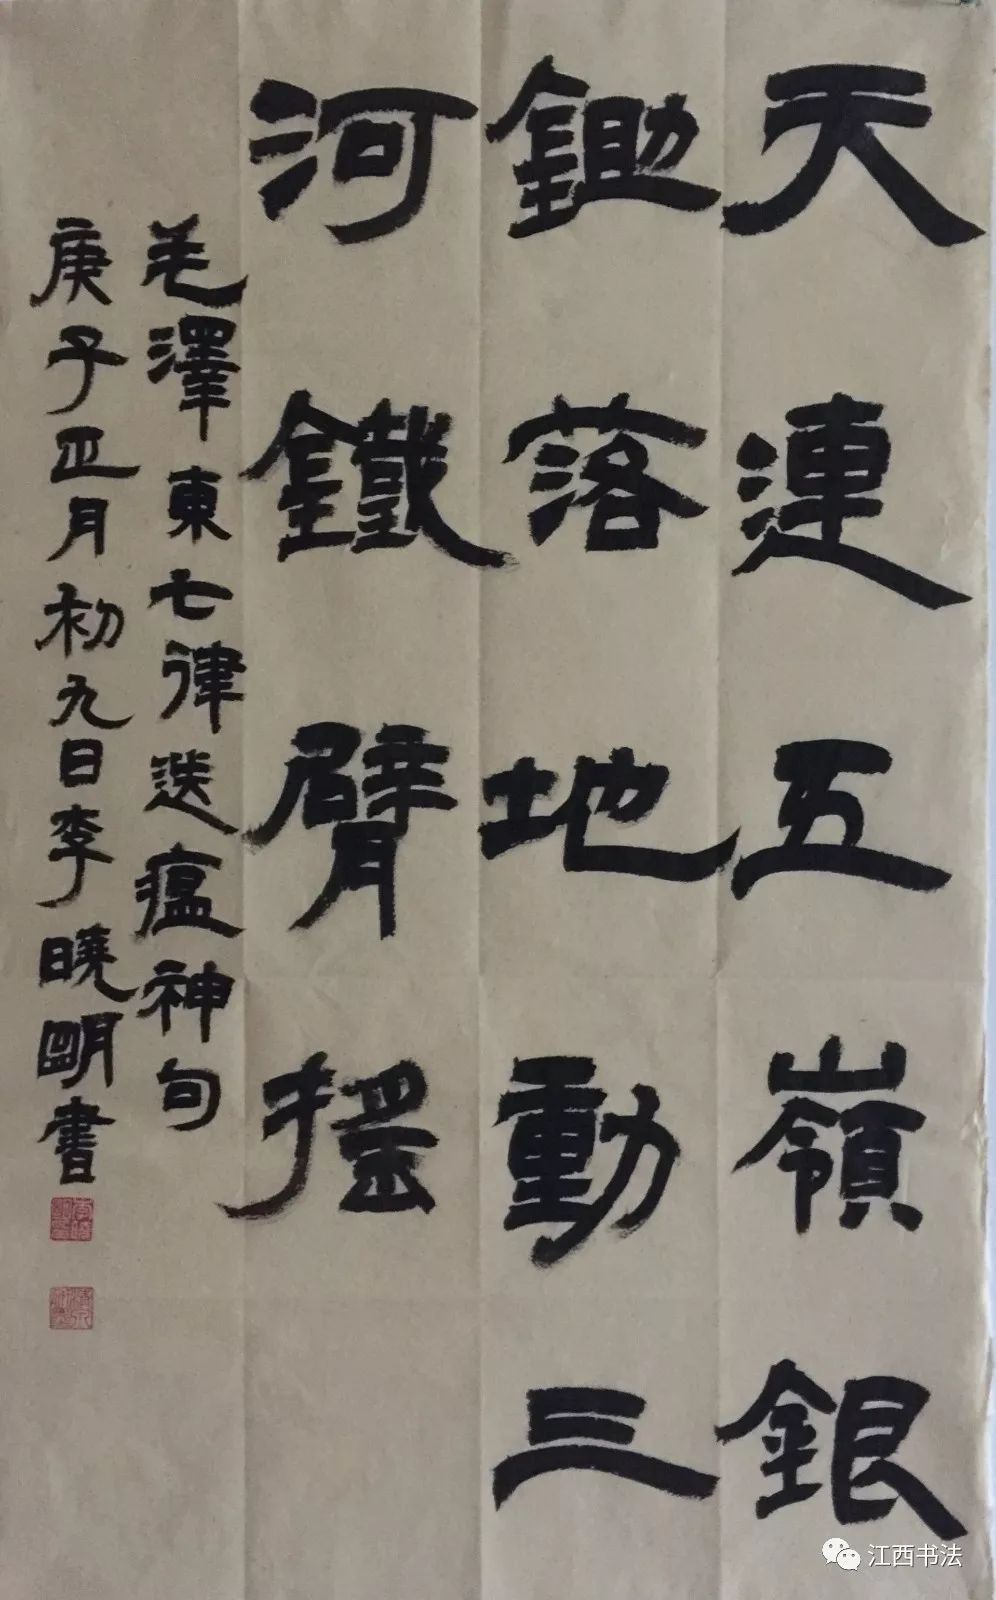 天連五嶺銀
鋤落地動三
河鐵臂摇
毛澤東七律送瘟神句
庚子正月初九日李曉明書
江西书法